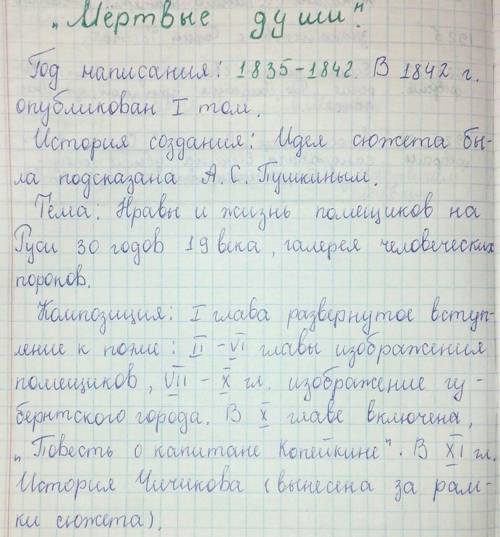 „Мёртвые души"
Год написания: 1835-1842. В 1842 г.
опубликован I том.
История создания: Идея сюжета бы-
ла подсказана А.С. Пушкиным.
Тема: Нравы и жизнь помещиков на
Руси 30 годов 19 века, галерея человеческих
пороков.
Композиция: I глава развернутое вступ-
ление к поэме: II - VI главы изображения
помещиков, VII - X гл. изображение гу-
бернтского города. В X главе включена,
„Повесть о капитане Копейкине". В XI гл.
История Чичикова (вынесена за рам-
ки сюжета).